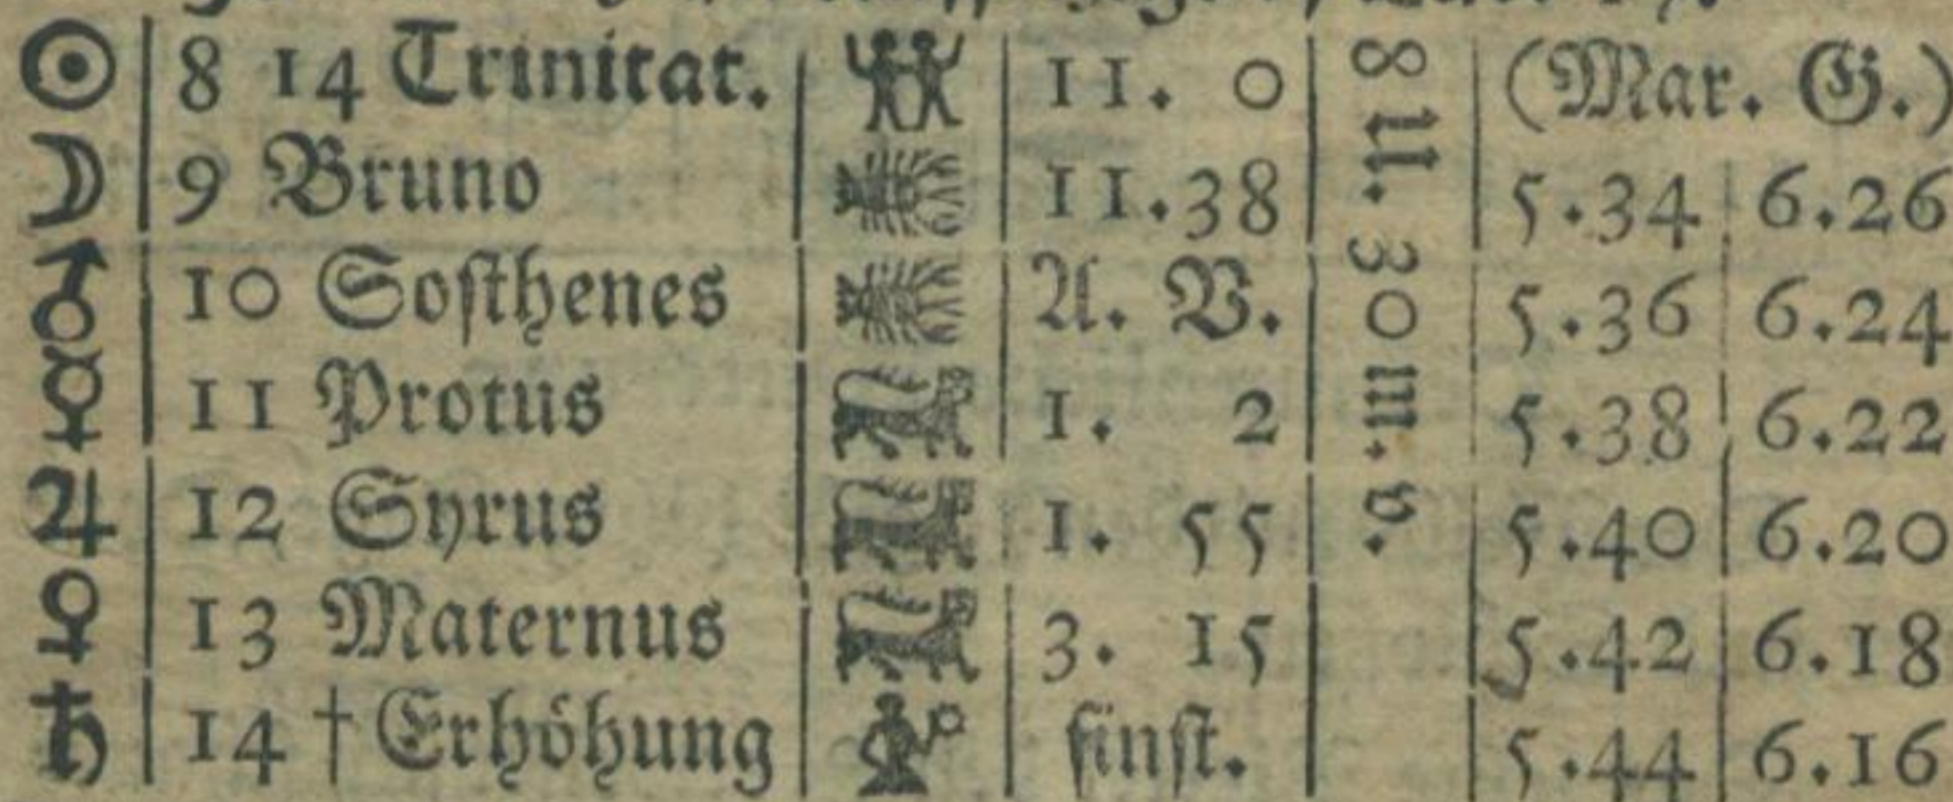 ☉ 8 14 Trinitat. 11. 0 (Mar. G.)
☽ 9 Bruno 11.38 5.34 6.26
♂ 10 Soſthenes A. V. 5.36 6.24
☿ 11 Protus 1. 2 5.38 6.22
♃ 12 Syrus 1. 55 5.40 6.20
♀ 13 Maternus 3. 15 5.42 6.18
♄ 14 † Erhöhung finſt. 5.44 6.16
8 U. 30 m. v.